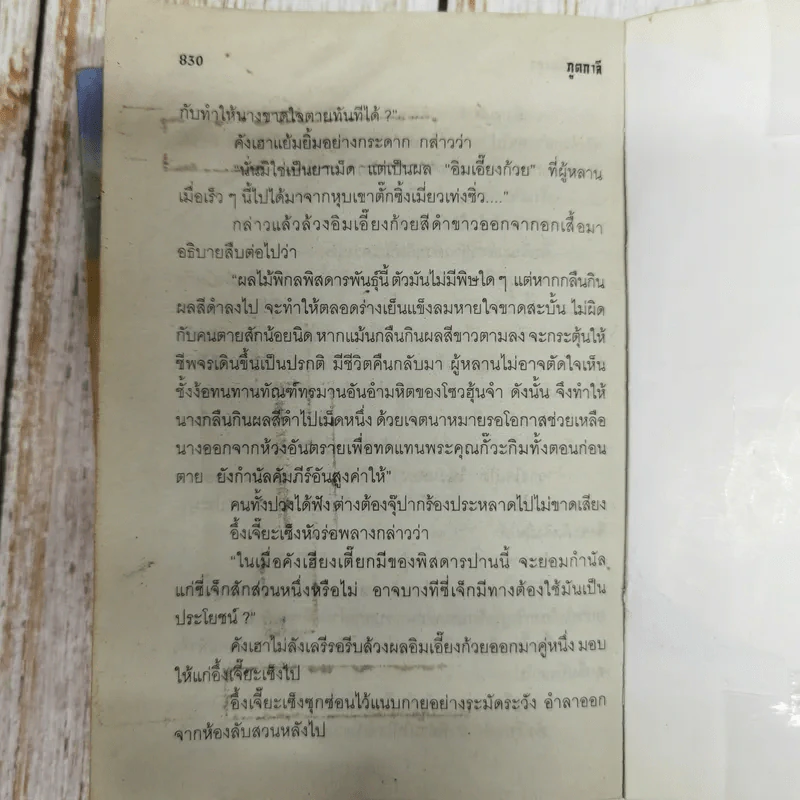 830
ภูตกาลี
กับทำให้นางขาดใจตายทันทีได้ ?"
คังเฮาแย้มยิ้มอย่างกระดาก กล่าวว่า
"นั่นมิใช่เป็นยาเม็ด แต่เป็นผล "อิมเอี๊ยงก้วย" ที่ผู้หลาน
เมื่อเร็ว ๆ นี้ไปได้มาจากหุบเขาตั๊กซิ้งเมี่ยวเท่งซิ่ว...."
กล่าวแล้วล้วงอิมเอี๊ยงก้วยสีดำขาวออกจากอกเสื้อมา
อธิบายสืบต่อไปว่า
"ผลไม้พิกลพิสดารพันธุ์นี้ ตัวมันไม่มีพิษใด ๆ แต่หากกลืนกิน
ผลสีดำลงไป จะทำให้ตลอดร่างเย็นแข็งลมหายใจขาดสะบั้น ไม่ผิด
กับคนตายสักน้อยนิด หากแม้นกลืนกินผลสีขาวตามลง จะกระตุ้นให้
ชีพจรเดินขึ้นเป็นปรกติ มีชีวิตคืนกลับมา ผู้หลานไม่อาจตัดใจเห็น
ซั้งง้อทนทานทัณฑ์ทรมานอันอำมหิตของโซวฮุ้นจำ ดังนั้น จึงทำให้
นางกลืนกินผลสีดำไปเม็ดหนึ่ง ด้วยเจตนาหมายรอโอกาสช่วยเหลือ
นางออกจากห้วงอันตรายเพื่อทดแทนพระคุณกั๊วะกิมทั้งตอนก่อน
ตาย ยังกำนัลคัมภีร์อันสูงค่าให้"
คนทั้งปวงได้ฟัง ต่างต้องจุ๊ปากร้องประหลาดไปไม่ขาดเสียง
อึ้งเจี๊ยะเซ็งหัวร่อพลางกล่าวว่า
"ในเมื่อคังเฮียงเตี๊ยกมีของพิสดารปานนี้ จะยอมกำนัล
แก่ซี่เจ็กสักส่วนหนึ่งหรือไม่ อาจบางทีซี่เจ็กมีทางต้องใช้มันเป็น
ประโยชน์ ?"
คังเฮาไม่ลังเลรีรอรีบล้วงผลอิมเอี๊ยงก้วยออกมาคู่หนึ่ง มอบ
ให้แก่อึ้งเจี๊ยะเซ็งไป
อึ้งเจี๊ยะเซ็งซุกซ่อนไว้แนบกายอย่างระมัดระวัง อำลาออก
จากห้องลับสวนหลังไป